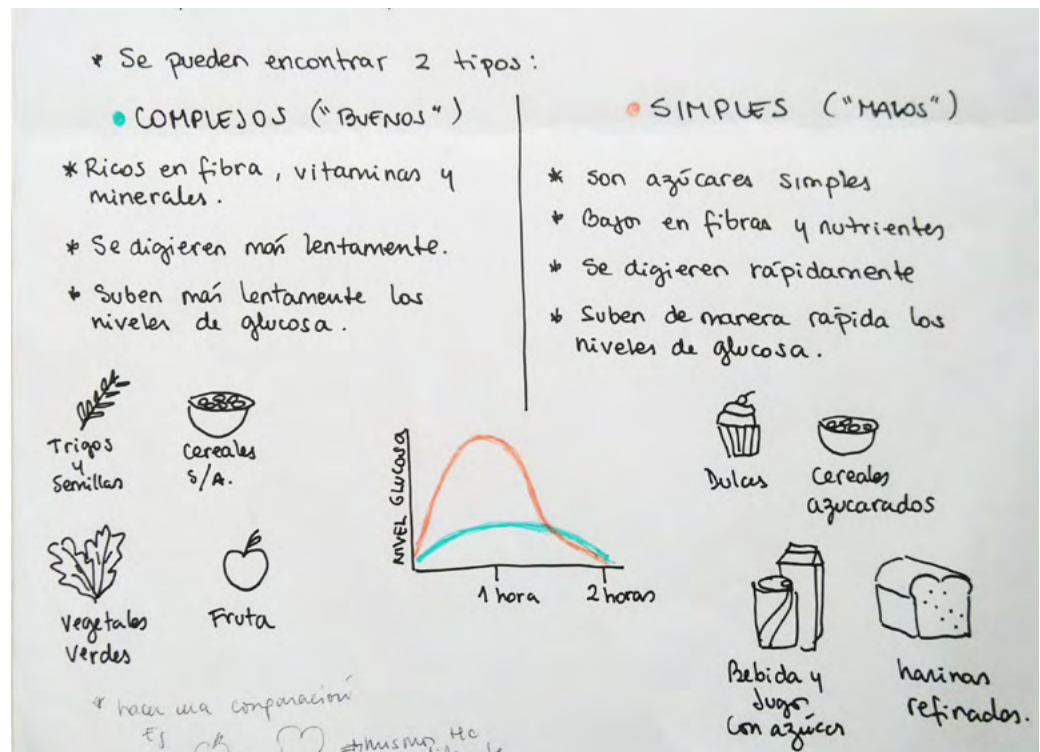 * Se pueden encontrar 2 tipos:
• COMPLEJOS ("BUENOS")
* Ricos en fibra, vitaminas y
minerales.
* Se digieren más lentamente.
* Suben más lentamente los
niveles de glucosa.
Trigos
y
Semillas
Cereales
S/A.
Vegetales
Verdes
Fruta
• SIMPLES ("MALOS")
* Son azúcares simples
* Bajos en fibras y nutrientes
* Se digieren rápidamente
* Suben de manera rápida los
niveles de glucosa.
Dulces
Cereales
azucarados
Bebida y
Jugo
Con azúcar
harinas
refinadas.
NIVEL GLUCOSA
1 hora
2 horas
* hacer una comparación
Ej
mismo